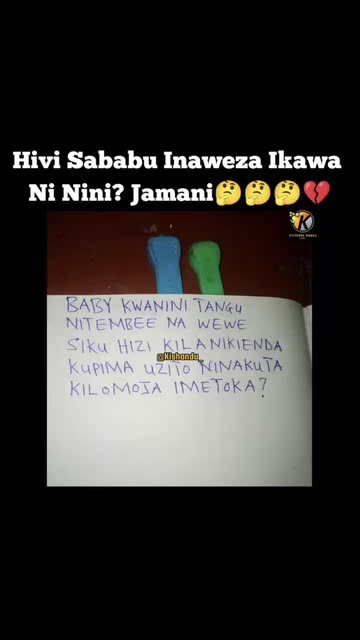 Hivi Sababu Inaweza Ikawa
Ni Nini? Jamani🤔🤔🤔💔
BABY KWANINI TANGU
NITEMBEE NA WEWE
SIKU HIZI KILANIKIENDA
@Kishandu_
KUPIMA UZITO NINAKUTA
KILOMOJA IMETOKA?